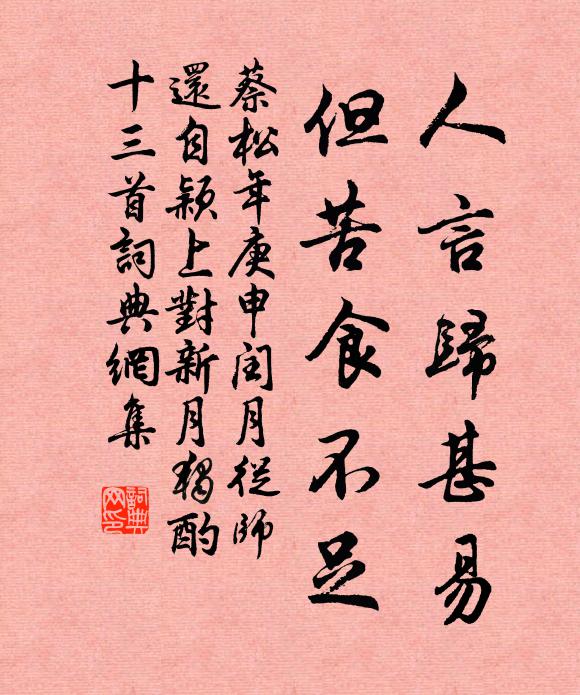 人言歸甚易
但苦食不足
蔡松年庚申閏月從師
還自潁上對新月獨酌
十三首詞典網集
詞典
网印